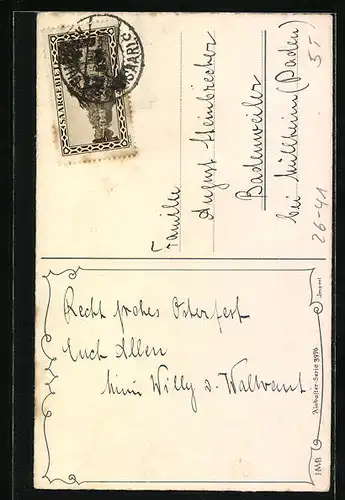 SAARGEBIET
Familie
August Steinbrecher
Badenweiler
bei Müllheim (Baden)
5 T
26-41
Recht frohes Osterfest
Euch Allen
Willy
Amboller-Serie 9976